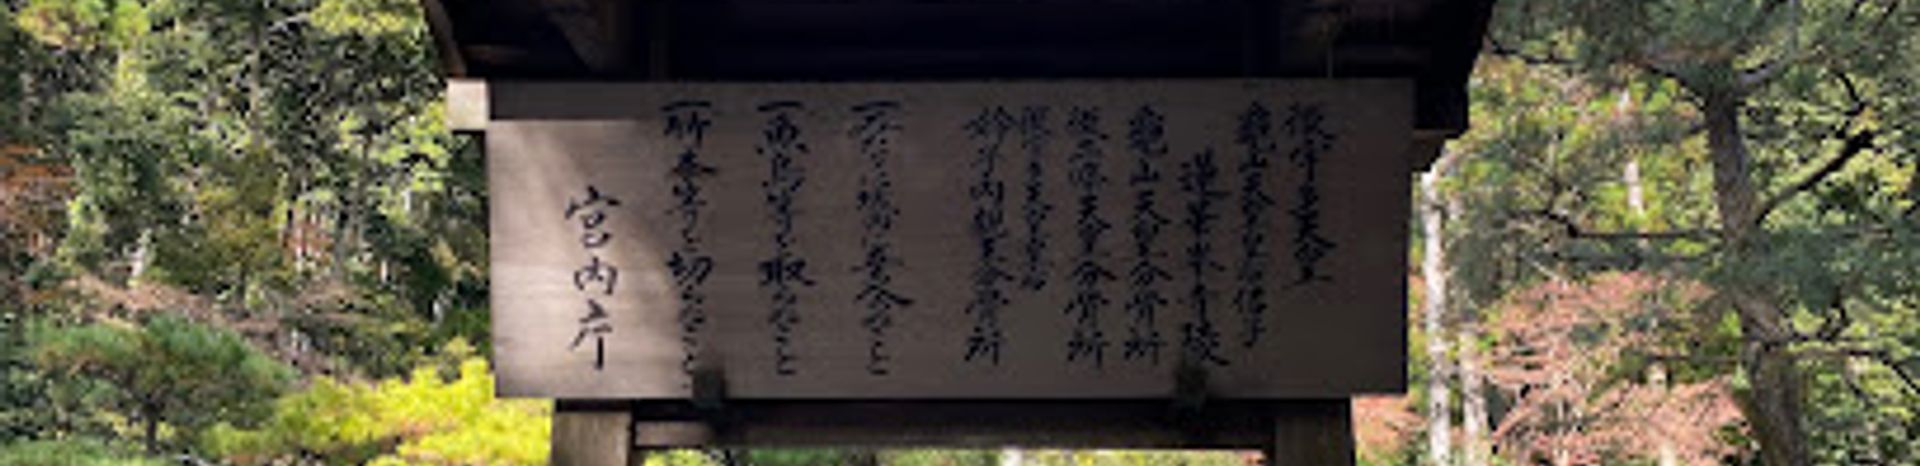 後宇多天皇
亀山天皇皇后佶子
蓮華峯寺陵
亀山天皇分骨所
後二條天皇分骨所
後宇多天皇皇后
姈子内親王分骨所
一みだりに域内に立入らぬこと
一魚鳥等を取らぬこと
一竹木等を切らぬこと
宮内庁